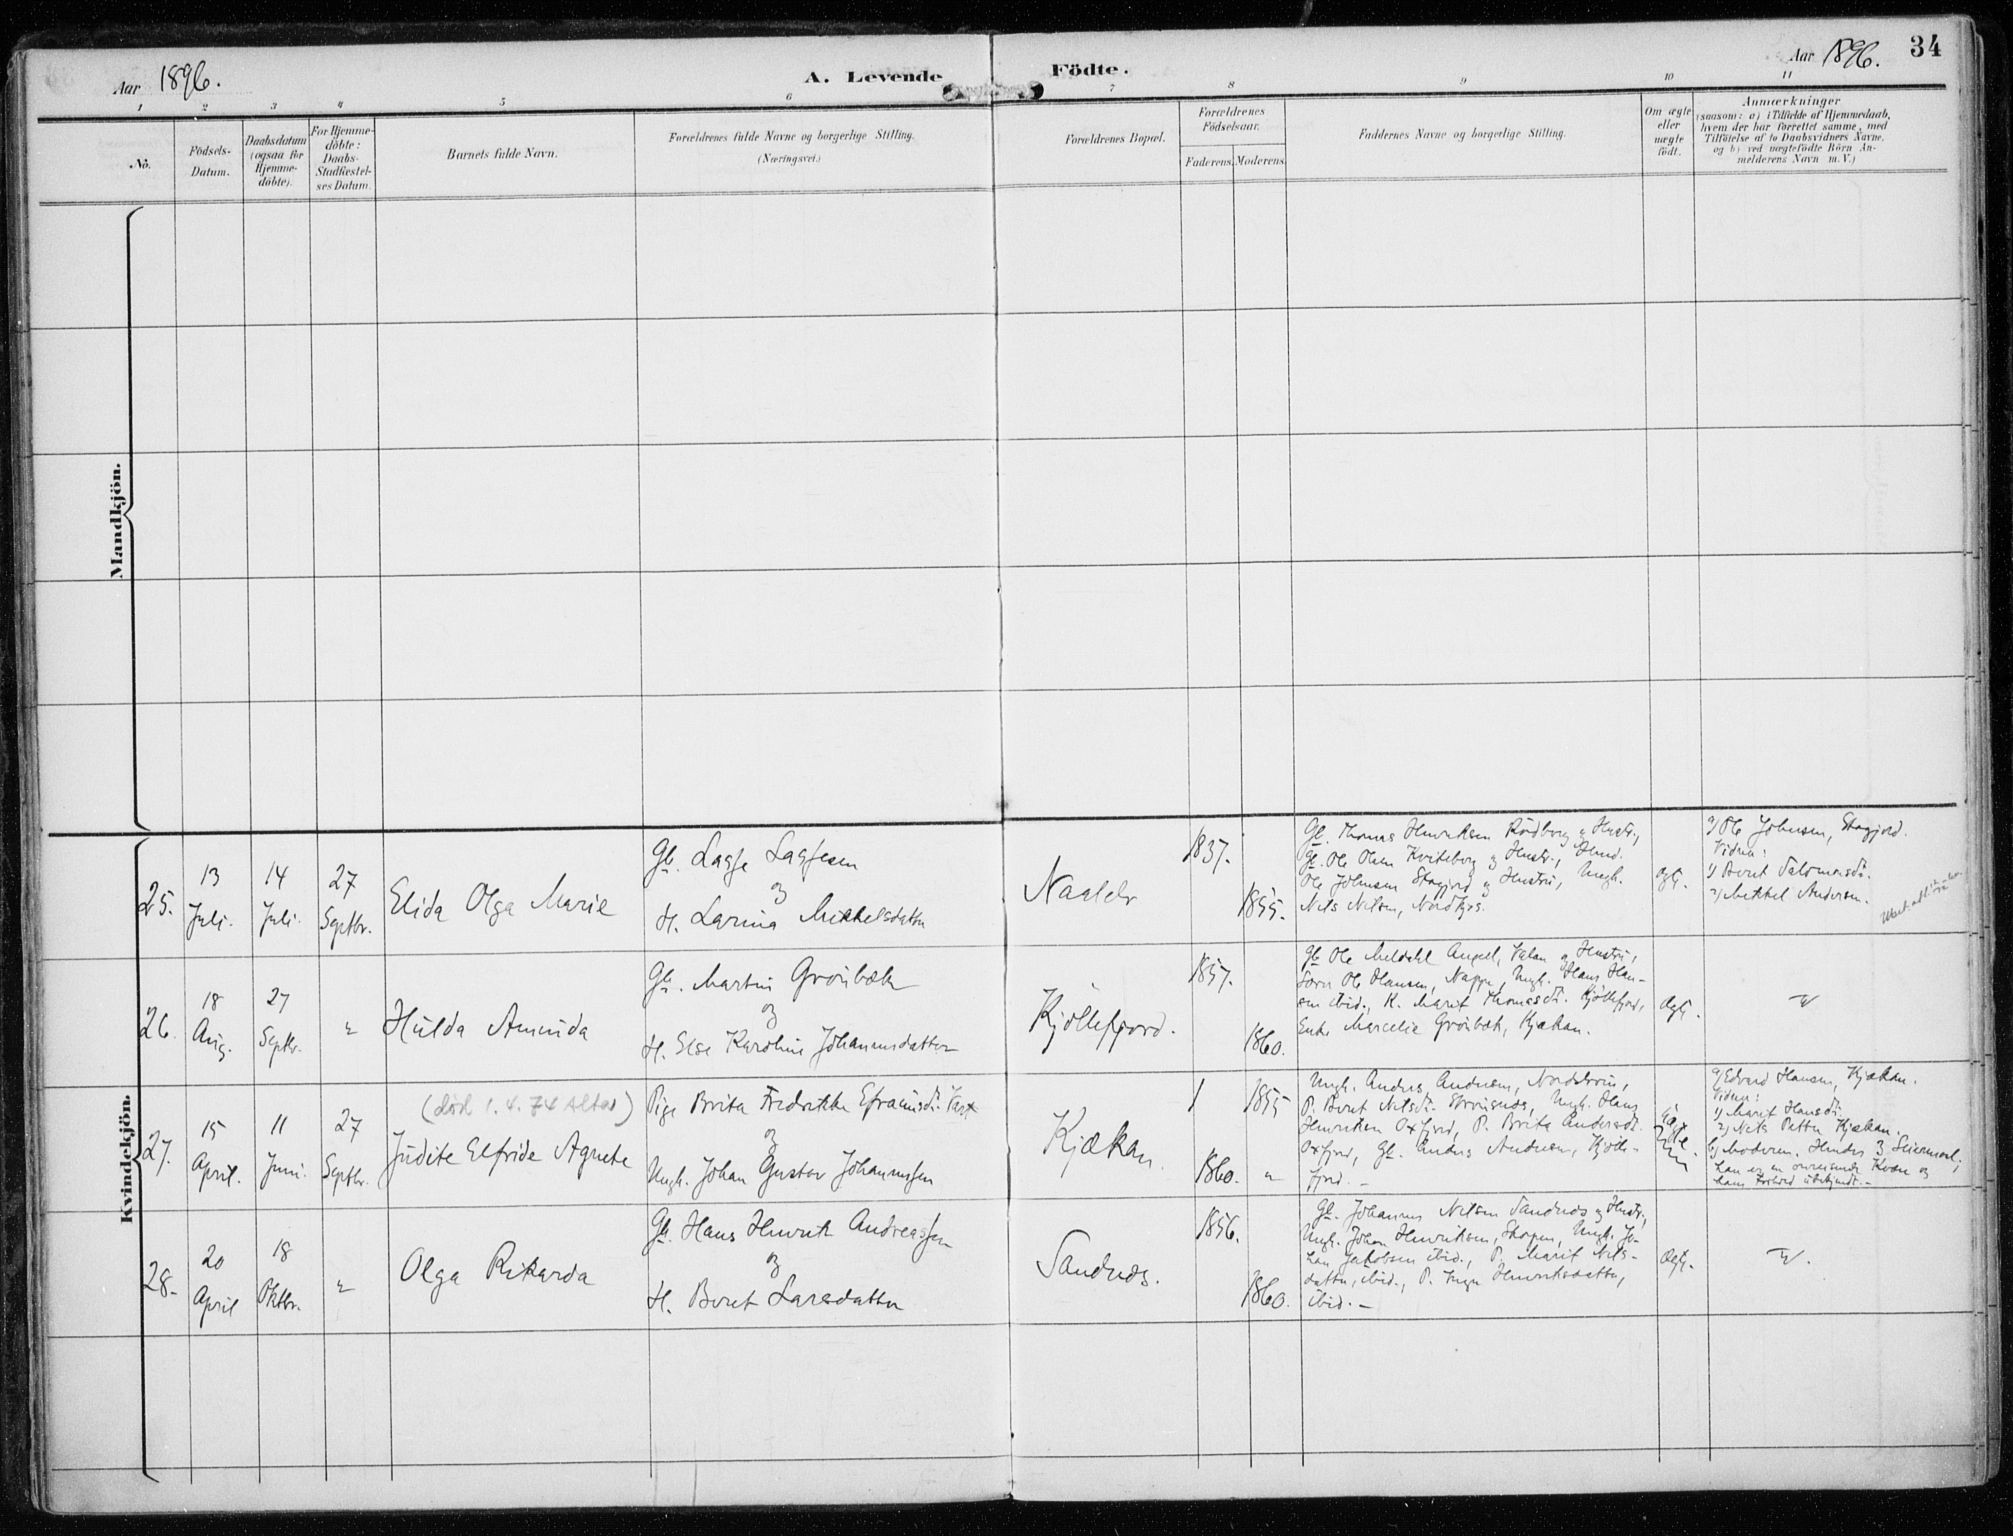 Aar 1896.
A. Levende Födte.
Aar 1896.
34
1
2
3
4
5
6
7
8
9
10
11
No.
Födsels-
Datum.
Daabsdatum
(ogsaa for
Hjemme-
döbte).
For Hjemme-
döbte:
Daabs-
Stadfæstel-
ses Datum.
Barnets fulde Navn.
Forældrenes fulde Navne og borgerlige Stilling.
(Næringsvei.)
Forældrenes Bopæl.
Forældrenes
Födselsaar.
Faderens.
Moderens.
Faddernes Navne og borgerlige Stilling.
Om ægte
eller
uægte
födt.
Anmærkninger
(saasom: a) i Tilfælde af Hjemmedaab,
hvem der har forrettet samme, med
Tilföielse af to Daabsvidners Navne.
og b) ved uægtefödte Börn An-
melderens Navn m. V.)
Mandkjön.
Kvindekjön.
25.
13
Juli.
14
Juli.
27
Septbr.
Elida Olga Marie
Gb. Lasse Lassesen
og
H. Larina Mikkelsdatter
1837.
1855.
Gb. Thomas Henriksen
Gb. Ole Olsen Kviteberg og Hustr.,
Ole Johnsen Stagjord og Hustru, Ungk.
Nils Nilsen,
Ægt.
a) Ole Johnsen, Stagjord.
Vidner:
1) Beret Salomonsdt.
2) Mikkel Andersen.
26.
18
Aug.
27
Septbr.
"
Hulda Aminda
Gb. Martin Grönbæk
og
H. Else Karoline Johannesdatter
Kjöllefjord.
1857.
1860.
Gb. Ole Meldahl og Hustru,
Ole Hansen, Ungk. Hans Han-
sen ibid., K. Marit Thomasdt. Kjöllefjord,
Enke Marcelie Grönbæk, Kjækan.
Ægt.
"
27.
15
April.
11
Juni.
27
Septbr.
(död 1.4.74 Alta)
Judite Elfride Agnete
Pige Brita Fredrikke Efraimsdt.
og
Ungk. Johan Gustav Johannessen
Kjækan.
1855
1860.
"
Ungk. Anders Andersen,
P. Beret Nilsdt. Ungk. Hans
Henriksen Oxfjord, P. Brita Andersdt.
Oxfjord, Gb. Anders Andersen, Kjölle-
fjord. –
a) Edvard Hansen, Kjækan.
Vidner:
1) Marit Hansdt.
2) Nils Petter Kjækan.
b) Moderen. Hendes 3
han er en omreisende Kvæn og
hans Forhold ubekjendt. –
28.
20
April
18
Oktbr.
"
Olga Rikarda
Gb. Hans Henrik Andreassen
og
H. Beret Larsdatter
Sandnes.
1856.
1860.
Gb. Johannes Nilsen Sandnes og Hustr.,
Ungk. Johan Henriksen, Ungk. Jo-
han Jakobsen ibid., P. Marit Nils-
datter, ibid., P. Inger Henriksdatter,
ibid. –
Ægt.
"